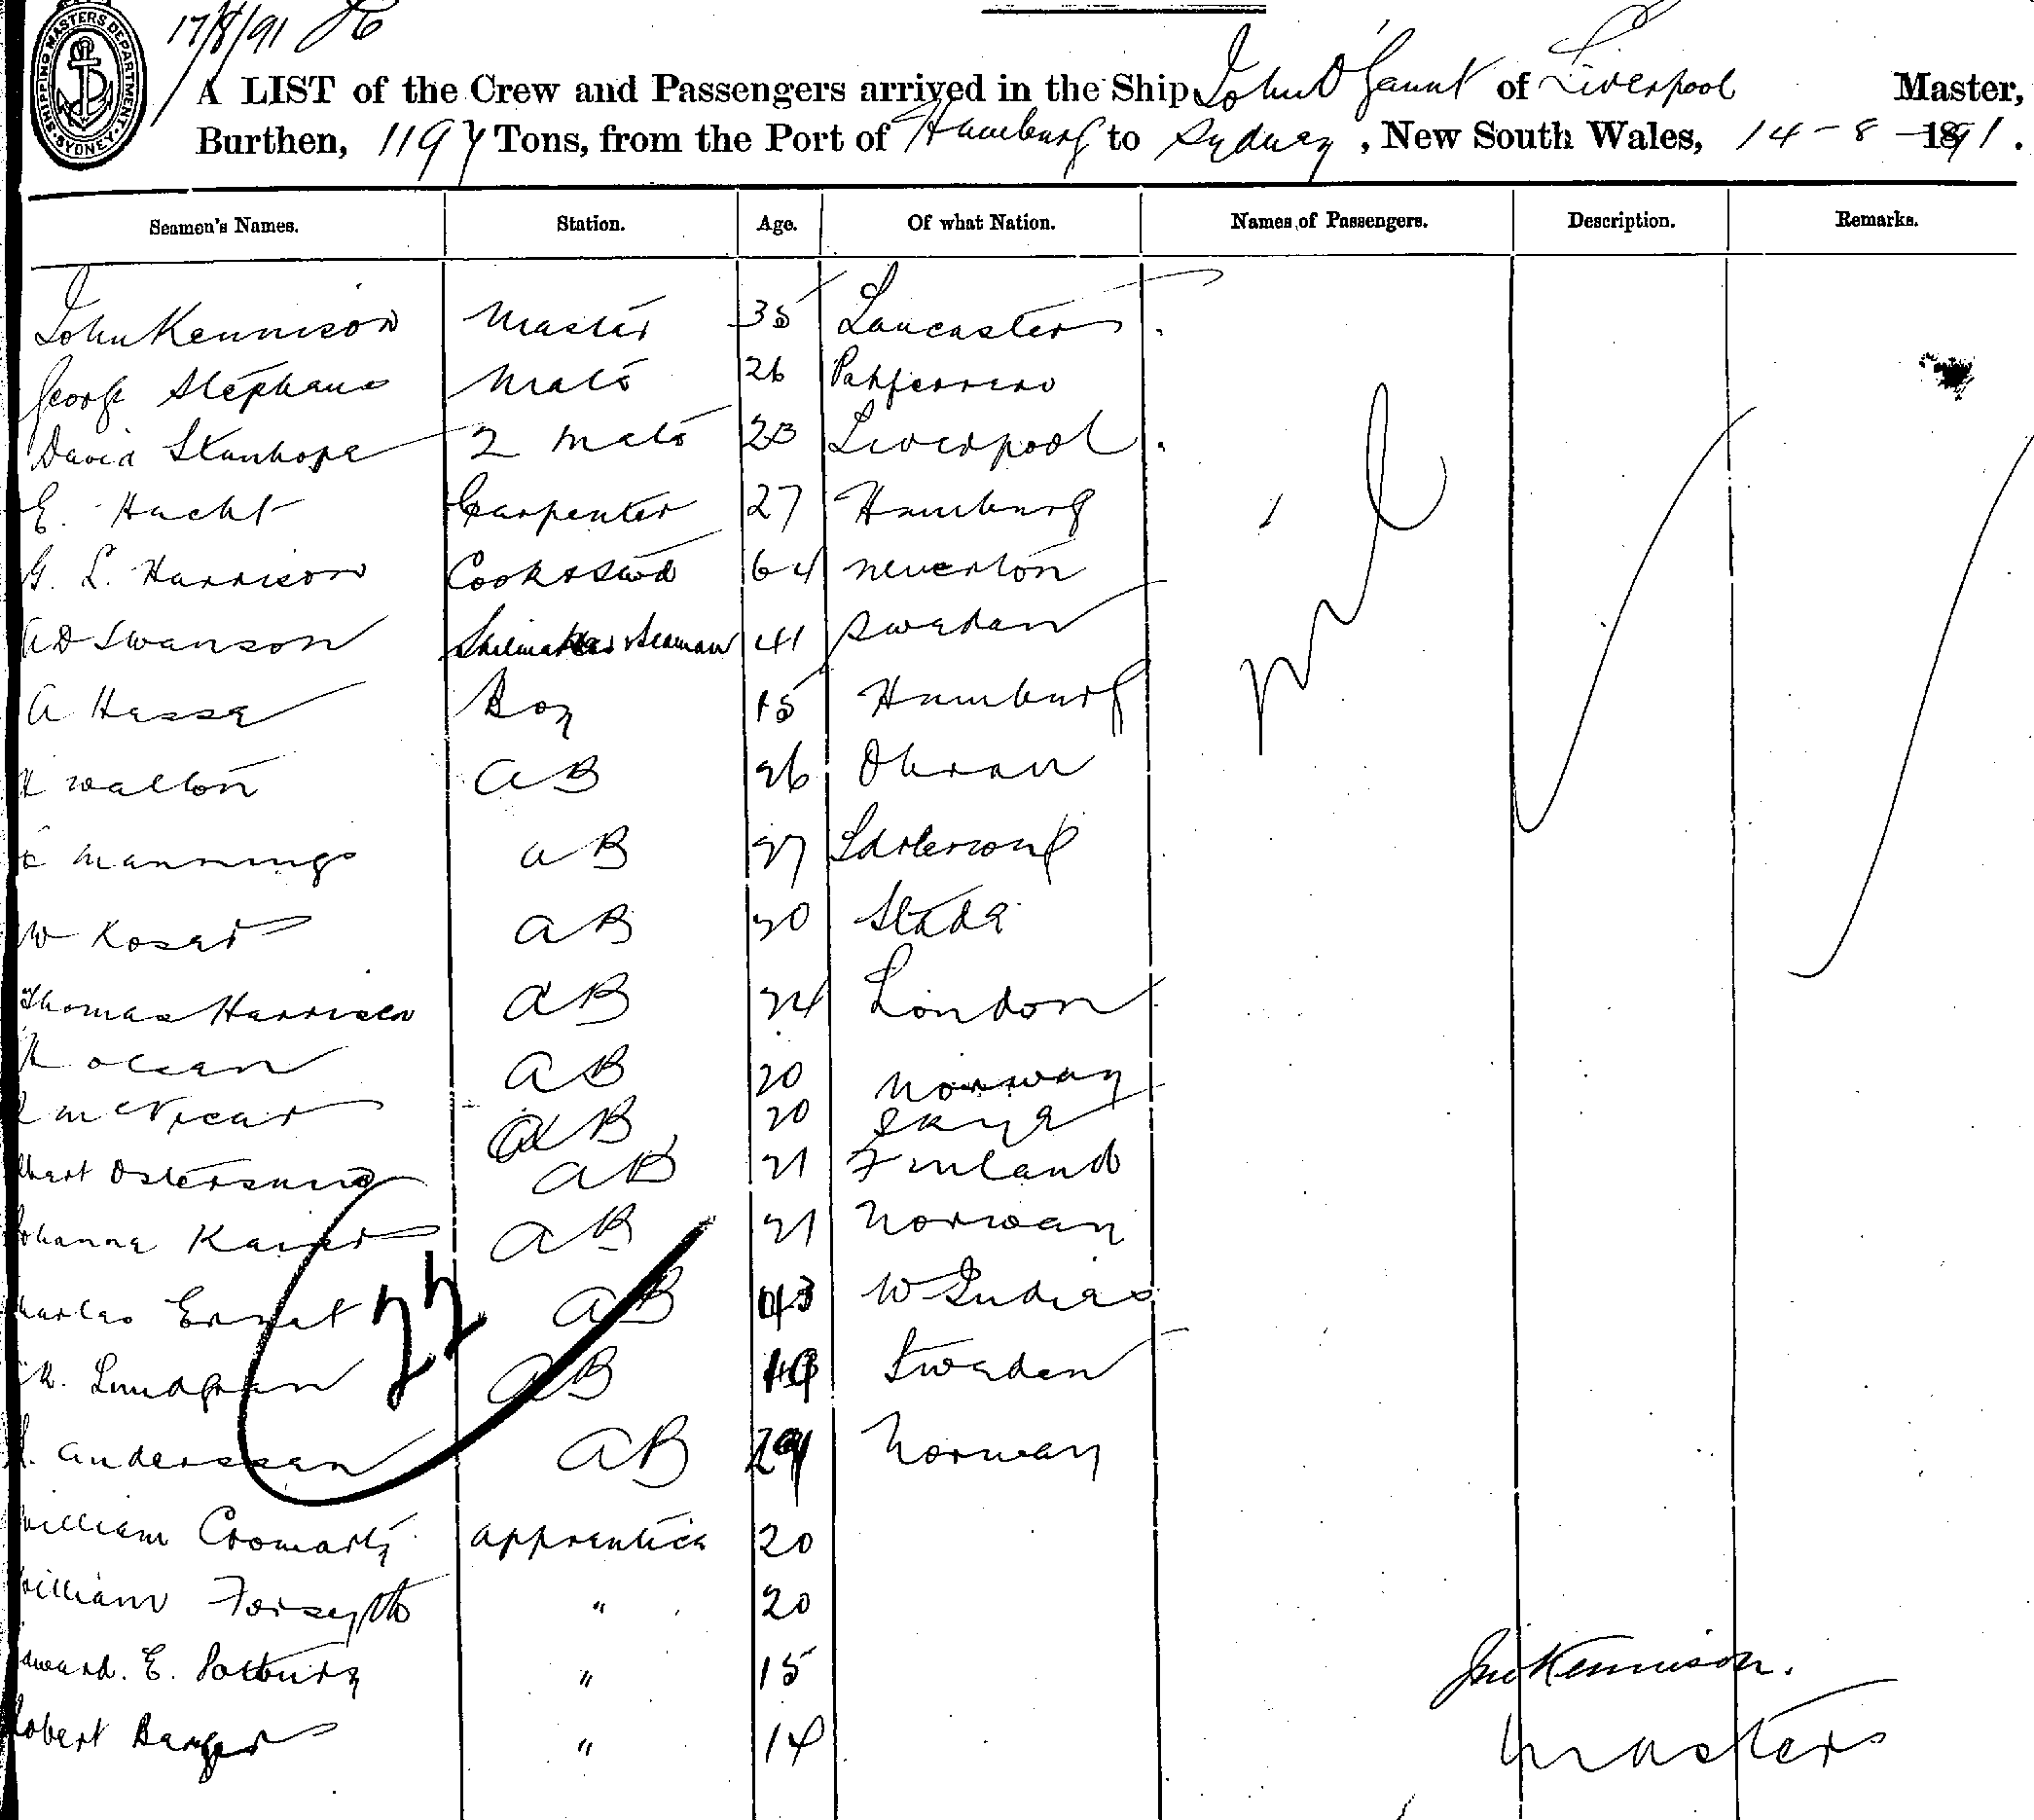 17/8/91
SHIPPING MASTERS DEPARTMENT SYDNEY
A LIST of the Crew and Passengers arrived in the Ship John O'Gaunt of Liverpool Master,
Burthen, 1197 Tons, from the Port of Hamburg to Sydney, New South Wales, 14-8-1891.
Seamen's Names. Station. Age. Of what Nation. Names of Passengers. Description. Remarks.
John Kennison Master 35 Lancaster
George Stephens Mate 26
David Stanhope 2 Mate 23 Liverpool
E. Hacht Carpenter 27 Hamburg
G. L. Harrison Cook & Stwd 64
Swanson Sailmaker & Seaman 41 Sweden
A Hesse Boy 15 Hamburg
Walton AB 26
Mannings AB 27
W Koser AB 20 Stade
Thomas Harrison AB 24 London
Olsen AB 20 Norway
McVicar AB 20 Skye
Ostersund AB 21 Finland
Kaiser AB 21 Norway
Charles Ernst AB 43 W Indies
Lundgren AB 19 Sweden
Anderssen AB Norway
22
William Cromarty apprentice 20
William Forsyth " 20
Edward. E. " 15
Robert " 14
nil
Jno Kennison.
Master